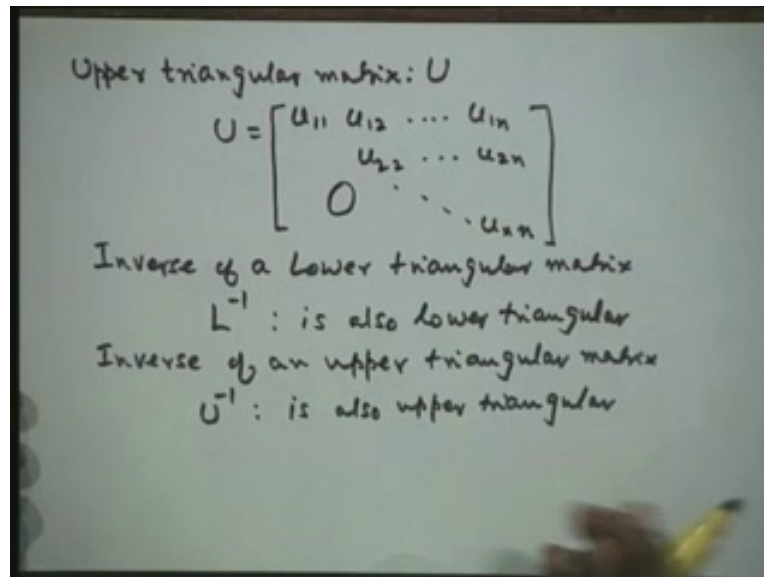 Upper triangular matrix: U
U = [ u11 u12 .... u1n
u22 ... u2n
O . . . . unn ]
Inverse of a Lower triangular matrix
L^-1 : is also lower triangular
Inverse of an upper triangular matrix
U^-1 : is also upper triangular